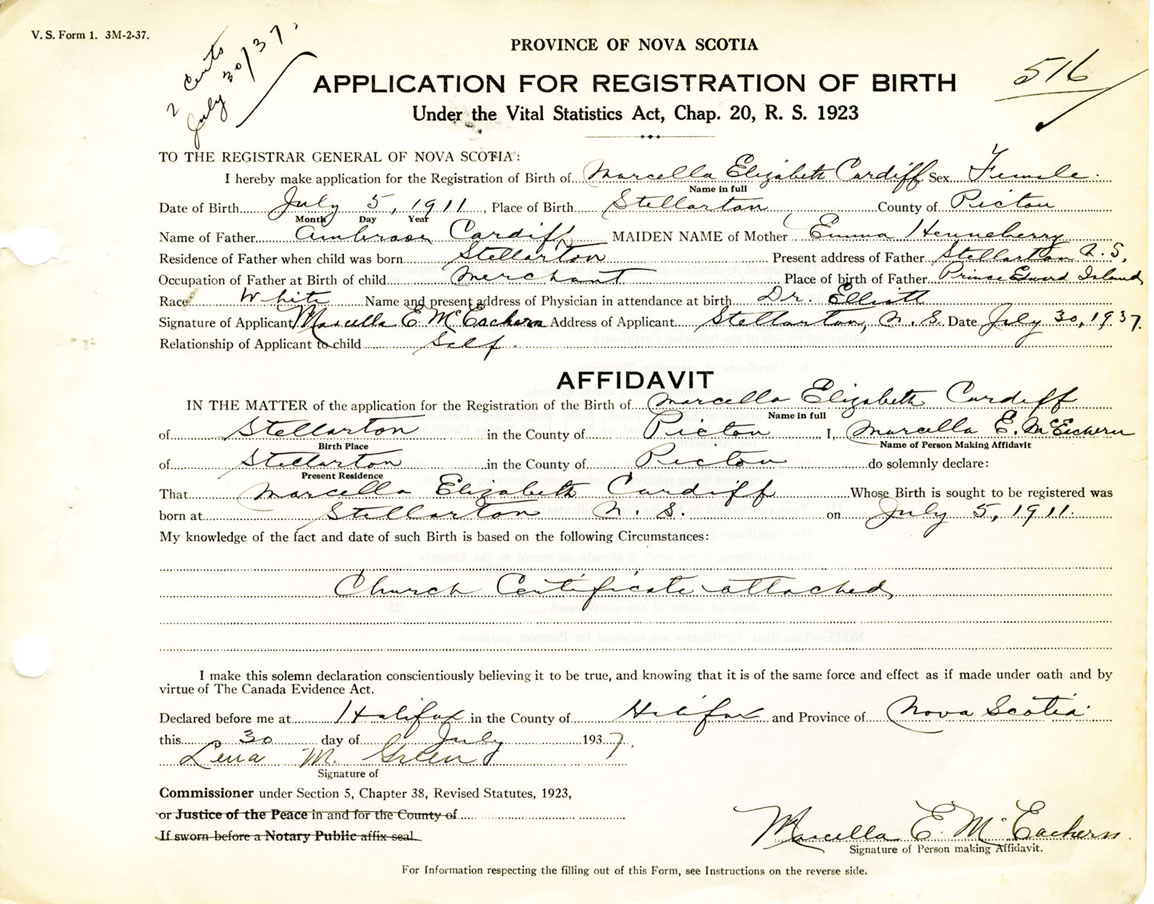 V. S. Form 1. 3M-2-37.
2 Certs
July 30/37.
PROVINCE OF NOVA SCOTIA
516
APPLICATION FOR REGISTRATION OF BIRTH
Under the Vital Statistics Act, Chap. 20, R. S. 1923
TO THE REGISTRAR GENERAL OF NOVA SCOTIA:
I hereby make application for the Registration of Birth of Marcella Elizabeth Cardiff Sex Female.
Name in full
Date of Birth July 5, 1911, Place of Birth Stellarton County of Pictou
Month Day Year
Name of Father Ambrose Cardiff, MAIDEN NAME of Mother Emma Henneberry
Residence of Father when child was born Stellarton Present address of Father Stellarton N.S.
Occupation of Father at Birth of child Merchant Place of birth of Father Prince Edward Island
Race White Name and present address of Physician in attendance at birth Dr. Elliott
Signature of Applicant Marcella E. McEachern Address of Applicant Stellarton, N.S. Date July 30, 1937.
Relationship of Applicant to child Self.
AFFIDAVIT
IN THE MATTER of the application for the Registration of the Birth of Marcella Elizabeth Cardiff
Name in full
of Stellarton in the County of Pictou I, Marcella E. McEachern
Birth Place Name of Person Making Affidavit
of Stellarton in the County of Pictou do solemnly declare:
Present Residence
That Marcella Elizabeth Cardiff Whose Birth is sought to be registered was
born at Stellarton N. S. on July 5, 1911.
My knowledge of the fact and date of such Birth is based on the following Circumstances:
Church Certificate attached
I make this solemn declaration conscientiously believing it to be true, and knowing that it is of the same force and effect as if made under oath and by
virtue of The Canada Evidence Act.
Declared before me at Halifax in the County of Halifax and Province of Nova Scotia
this 30 day of July 1937.
Lena M. Green
Signature of
Commissioner under Section 5, Chapter 38, Revised Statutes, 1923,
or Justice of the Peace in and for the County of
If sworn before a Notary Public affix seal.
Marcella E. McEachern.
Signature of Person making Affidavit.
For Information respecting the filling out of this Form, see Instructions on the reverse side.